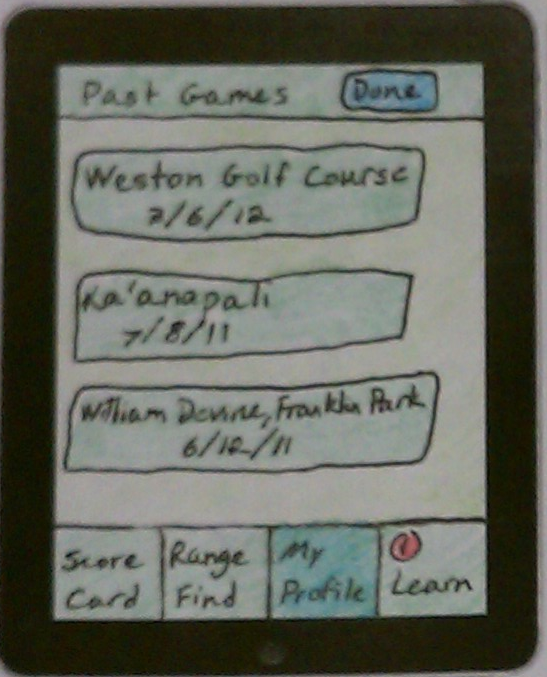 Past Games Done
Weston Golf Course
2/6/12
Ka'anapali
7/8/11
William Devine, Franklin Park
6/12/11
Score Range My 1
Card Find Profile Learn